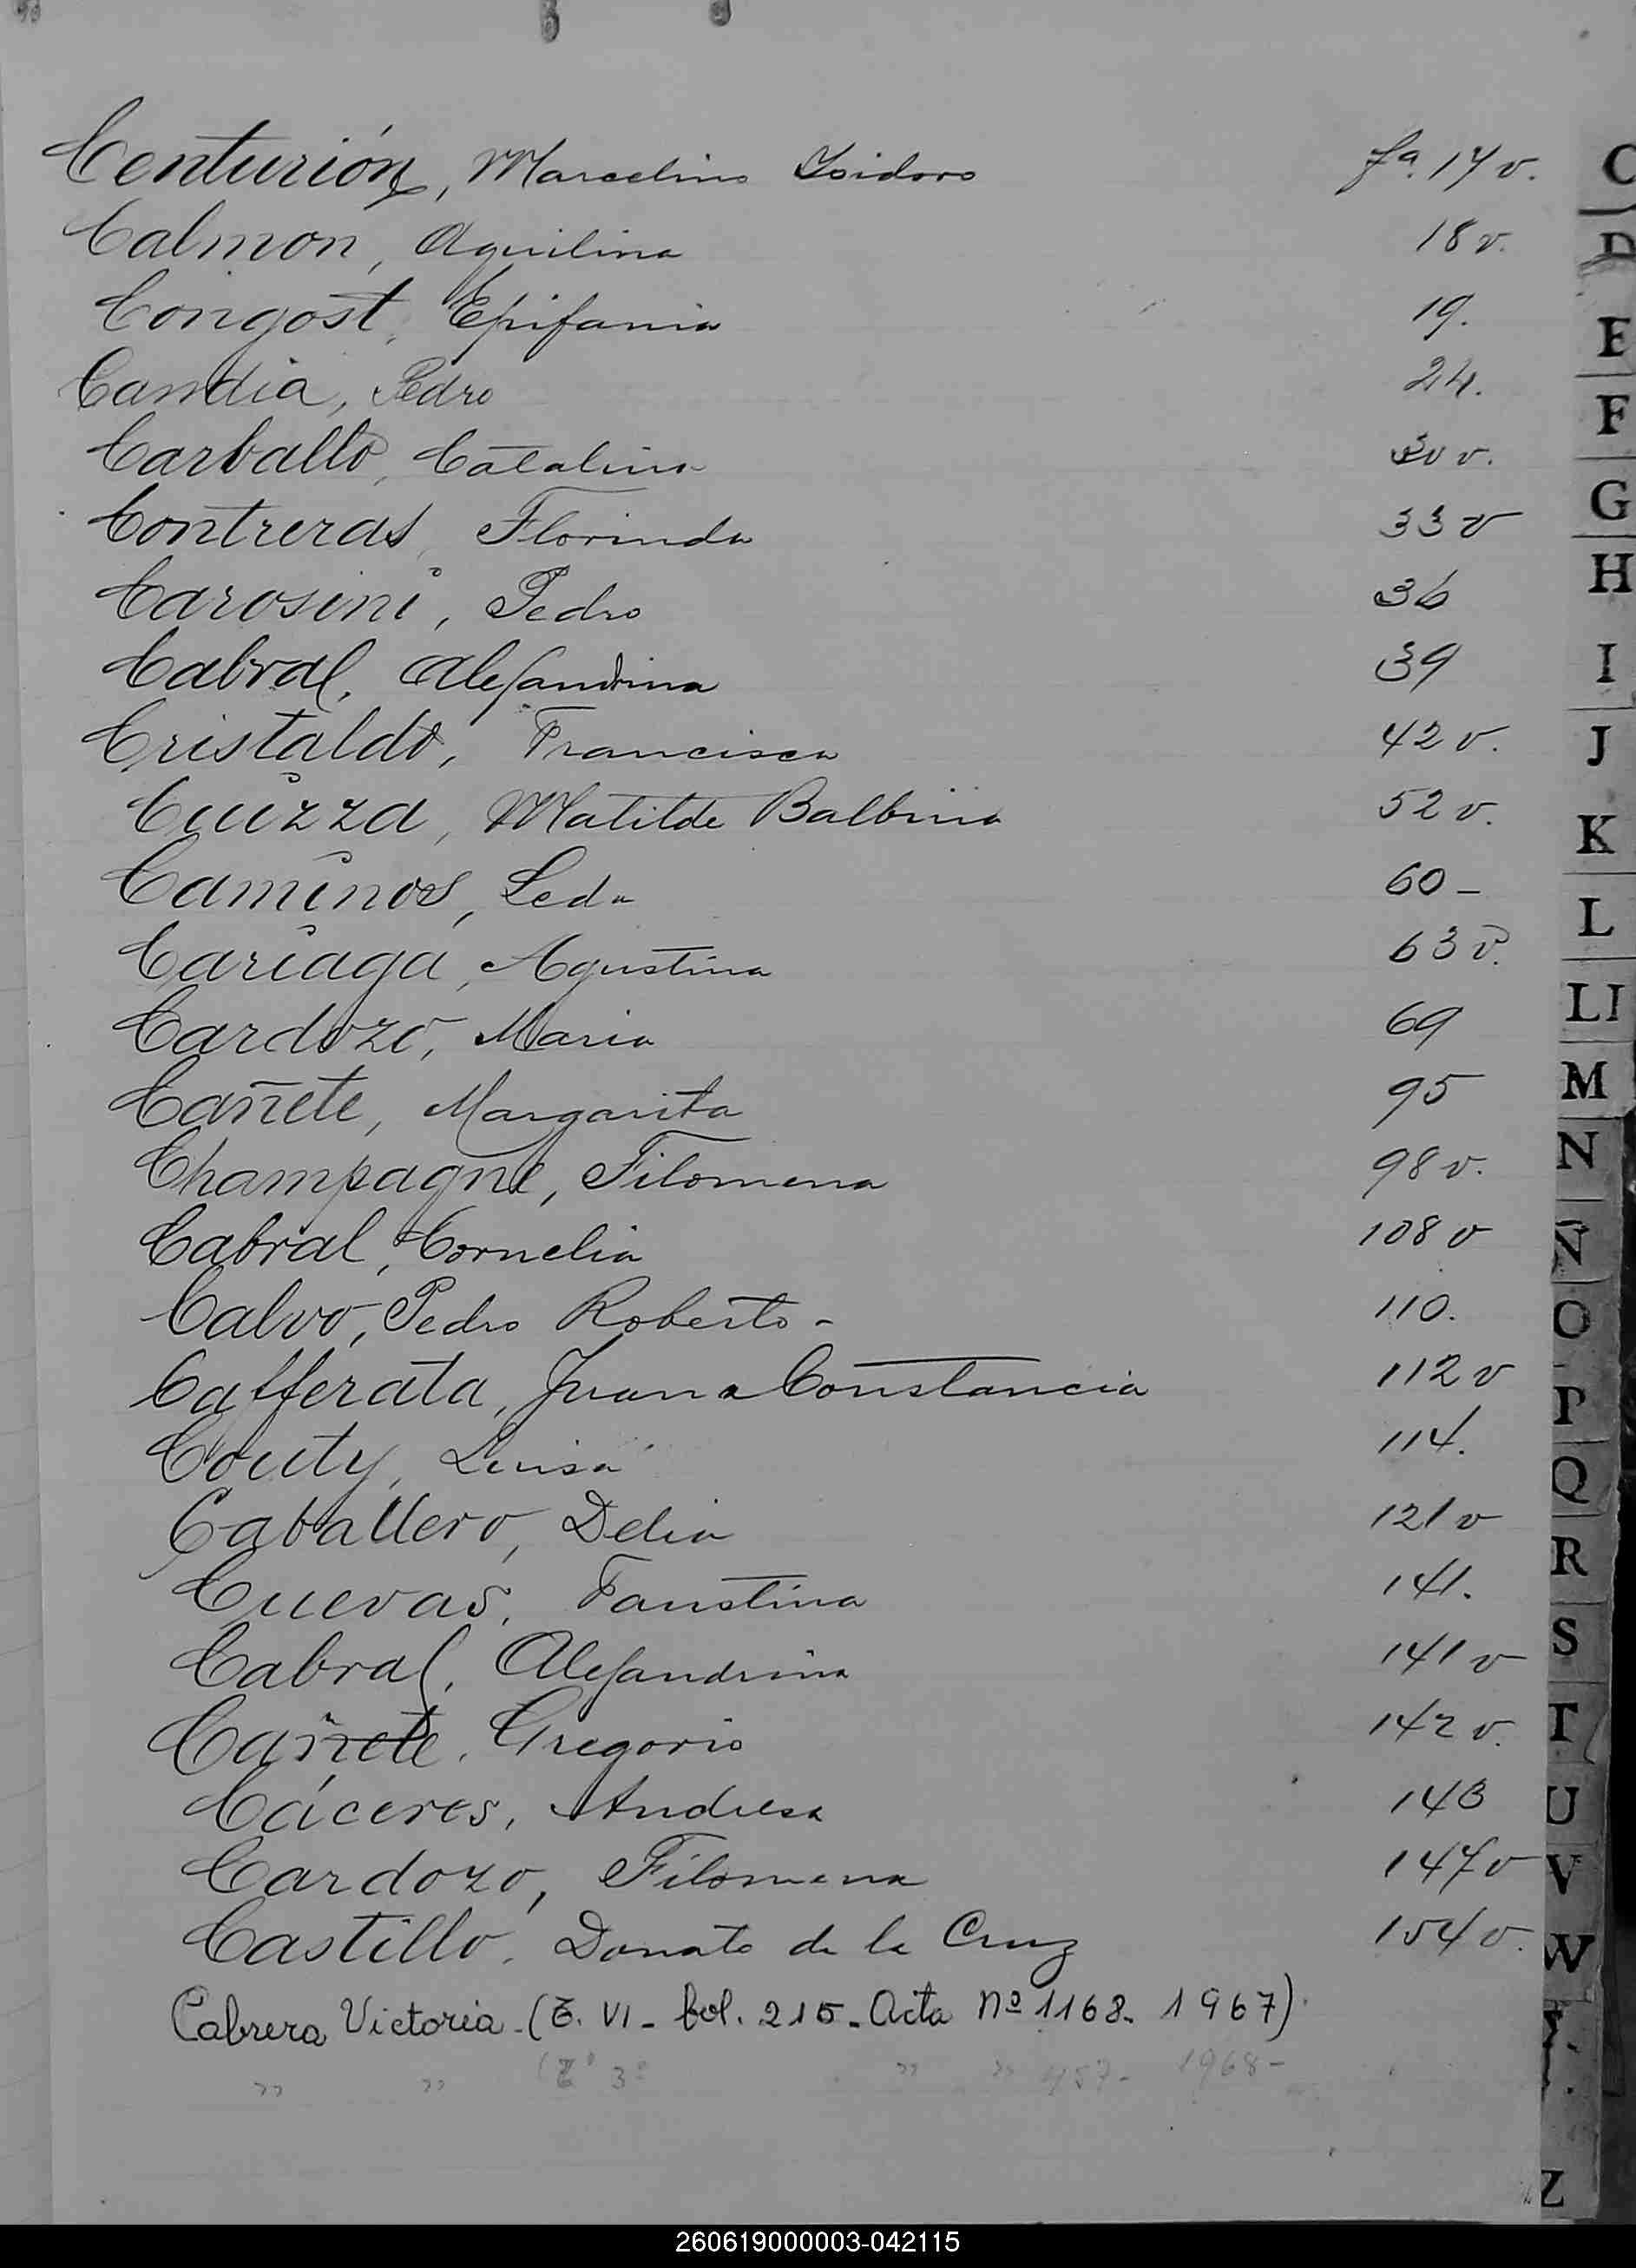 Centurión, Marcelino Isidoro fª. 17 v.
Calmon, Aquilina 18 v.
Congost, Epifania 19.
Candia, Pedro 24.
Carballo, Catalina 30 v.
Contreras, Florinda 33 v
Carosini, Pedro 36
Cabral, Alejandrina 39
Cristaldo, Francisca 42 v.
Cuizza, Matilde Balbina 52 v.
Caminos, Leda 60 -
Cariaga, Agustina 63 v.
Cardozo, Maria 69
Cañete, Margarita 95
Champagne, Filomena 98 v.
Cabral, Cornelia 108 v
Calvo, Pedro Roberto - 110.
Cafferata, Juana Constancia 112 v
Couty, Luisa 114.
Caballero, Delia 121 v
Cuevas, Faustina 141.
Cabral, Alejandrina 141 v
Cañete, Gregorio 142 v.
Cáceres, Andresa 143
Cardozo, Filomena 147 v
Castillo, Donato de la Cruz 154 v.
Cabrera Victoria - (T. VI - fol. 215 - Acta nº 1168 - 1967)
" " (Tº 3º " " 457 - 1968 -
C
D
E
F
G
H
I
J
K
L
Ll
M
N
Ñ
O
P
Q
R
S
T
U
V
W
Z
260619000003-042115